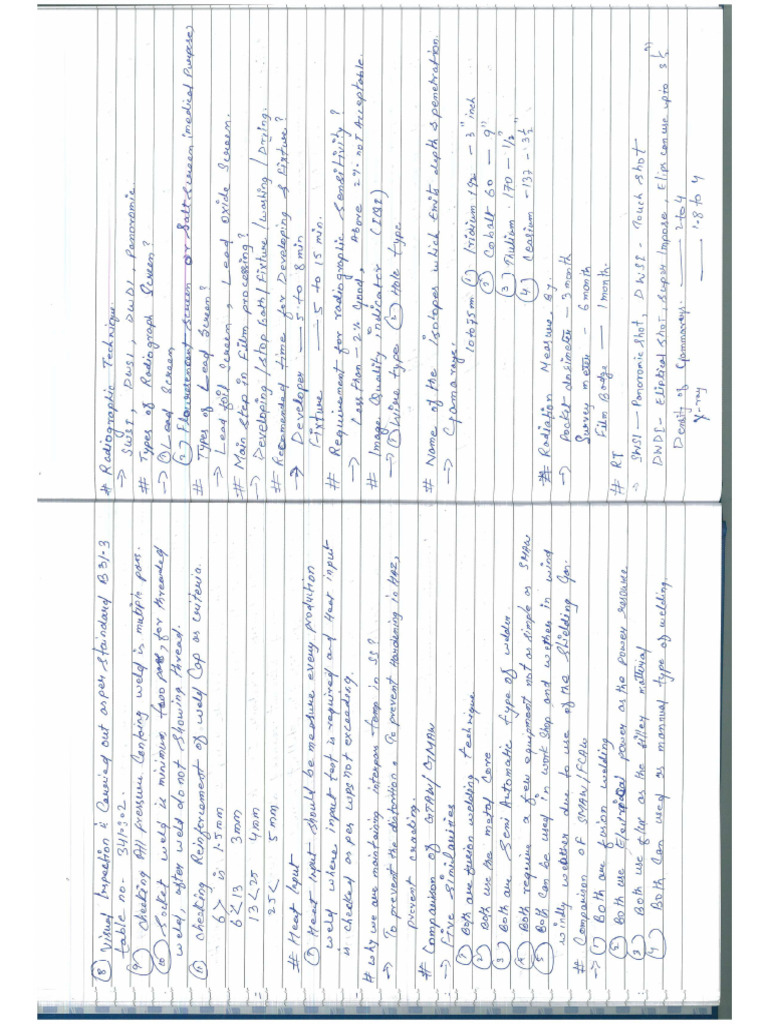 ⑧ Visual Inspection is Carried out as per standard B 31.3
table no. 341.3.2.
⑨ checking All pressure Containg weld is multiple pass.
⑩ Socket weld is minimum two pass, for threaded
weld, after weld do not showing thread.
⑪ checking Reinforcement of weld Cap as criteria.
6 > is 1.5mm
6 < 13 3mm
13 < 25 4mm
25 < 5 mm
# Heat Input
① Heat input should be measure every production
weld where impact test is required and Heat input
is checked as per WPS not exceeding.
# why we are maintaining interpass temp in SS?
→ To prevent the distortion. To prevent Hardening in HAZ,
prevent cracking.
# Comparison of GMAW/
→ Five Similarities
① Both are fusion welding technique.
② Both use the metal Core
③ Both are Semi Automatic type of welder.
④ Both require a few equipment not as simple as SMAW
⑤ Both can be used in work shop and wether in wind
windy wether due to use of the Shielding Gas.
# Comparison of SMAW/FCAW
→ ① Both are fusion welding
② Both use Electrical power as the power resource.
③ Both use flux as the filler material
④ Both Can used as mannual type of welding.
# Radiographic Technique.
→ SWSI, DWSI, DWDI, Panoromic.
# Types of Radiograph Screen?
→ ① Lead Screen
② Flourescent Screen or Salt Screen (medical Purpose)
# Types of Lead Screen?
→ Lead foil Screen, Lead Oxide Screen.
# Main step in Film processing?
→ Developing / Stop bath / Fixture / Washing / Drying.
# Recomended time for Developing & Fixture?
→ Developer — 5 to 8 min
Fixture — 5 to 15 min.
# Requirement for radiographic Sensitivity?
→ Less than — 2% Good, Above 2% not Acceptable.
# Image Quality indicator (IQI)
→ ① Wire type ② Hole type
# Name of the isotopes which Emits depth & penetration.
→ Gamma rays. 10 to 75m ① Iridium 192 — 3" inch
② Cobalt 60 — 9"
③ Thulium 170 — 1/2"
④ Ceasium - 137 - 3½"
# Radiation Measure. By.
→ Pocket dosimeter — 3 month
Survey meter — 6 month
Film Badge — 1 month.
# RT
→ SWSI — Panoromic Shot, DWSI - Touch Shot
DWDI - Eliptical Shot, Super Impose, Elip. can use upto 3½"
Density of Gammarey. — 2 to 4
X-ray — 1.8 to 4